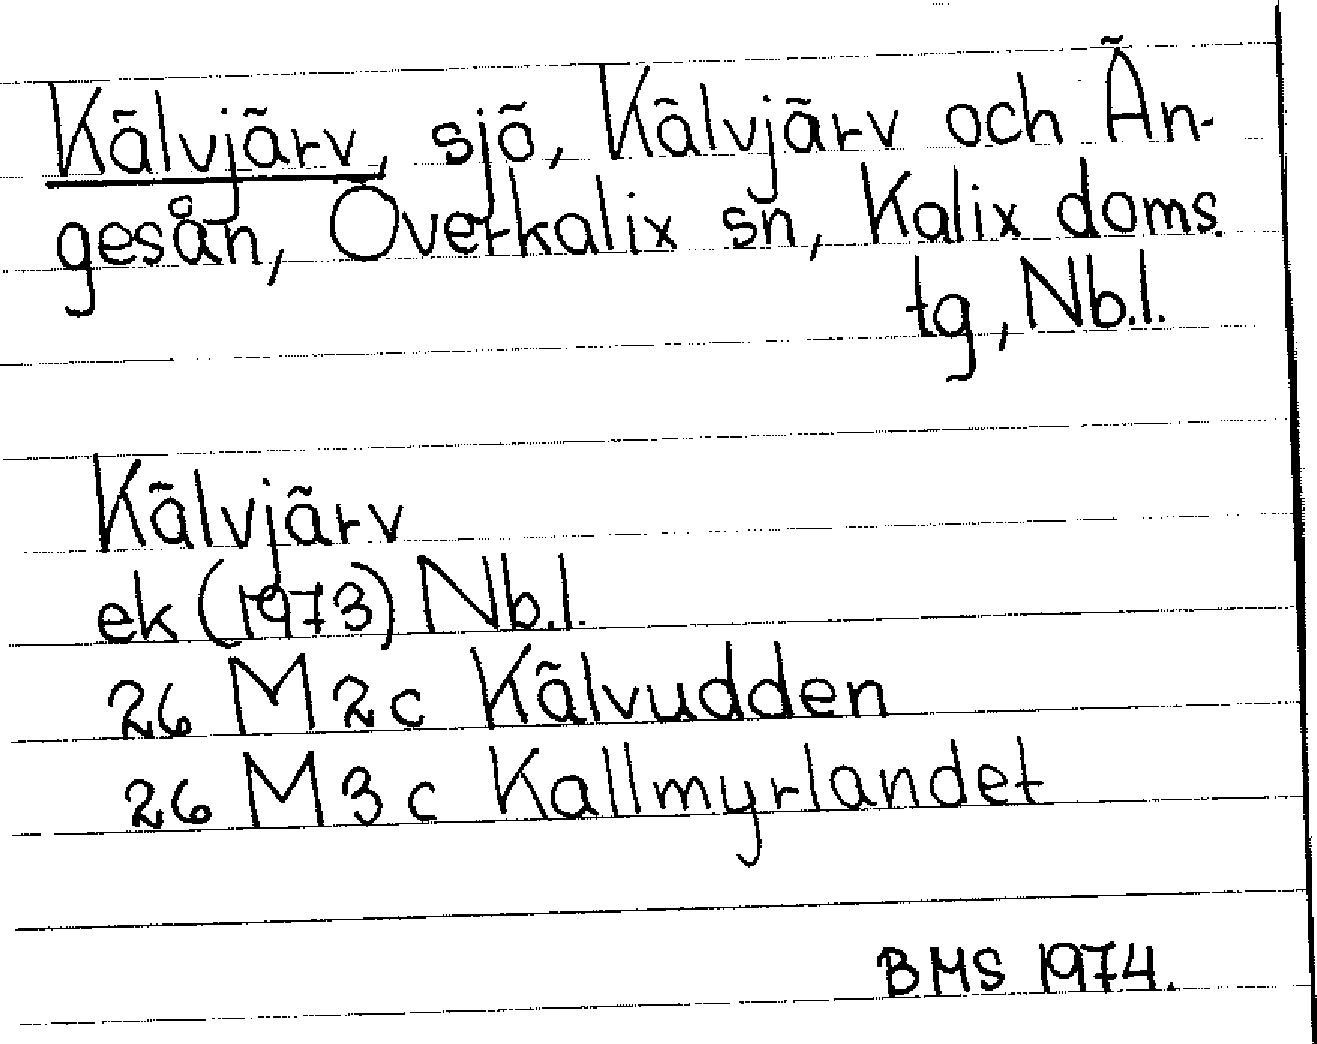 Kälvjärv, sjö, Kälvjärv och Än-
gesån, Överkalix sn, Kalix doms.
tg, Nb.l.
Kälvjärv
ek (1973) Nb.l.
26 M 2c Kälvudden
26 M 3c Kallmyrlandet
BMS 1974.